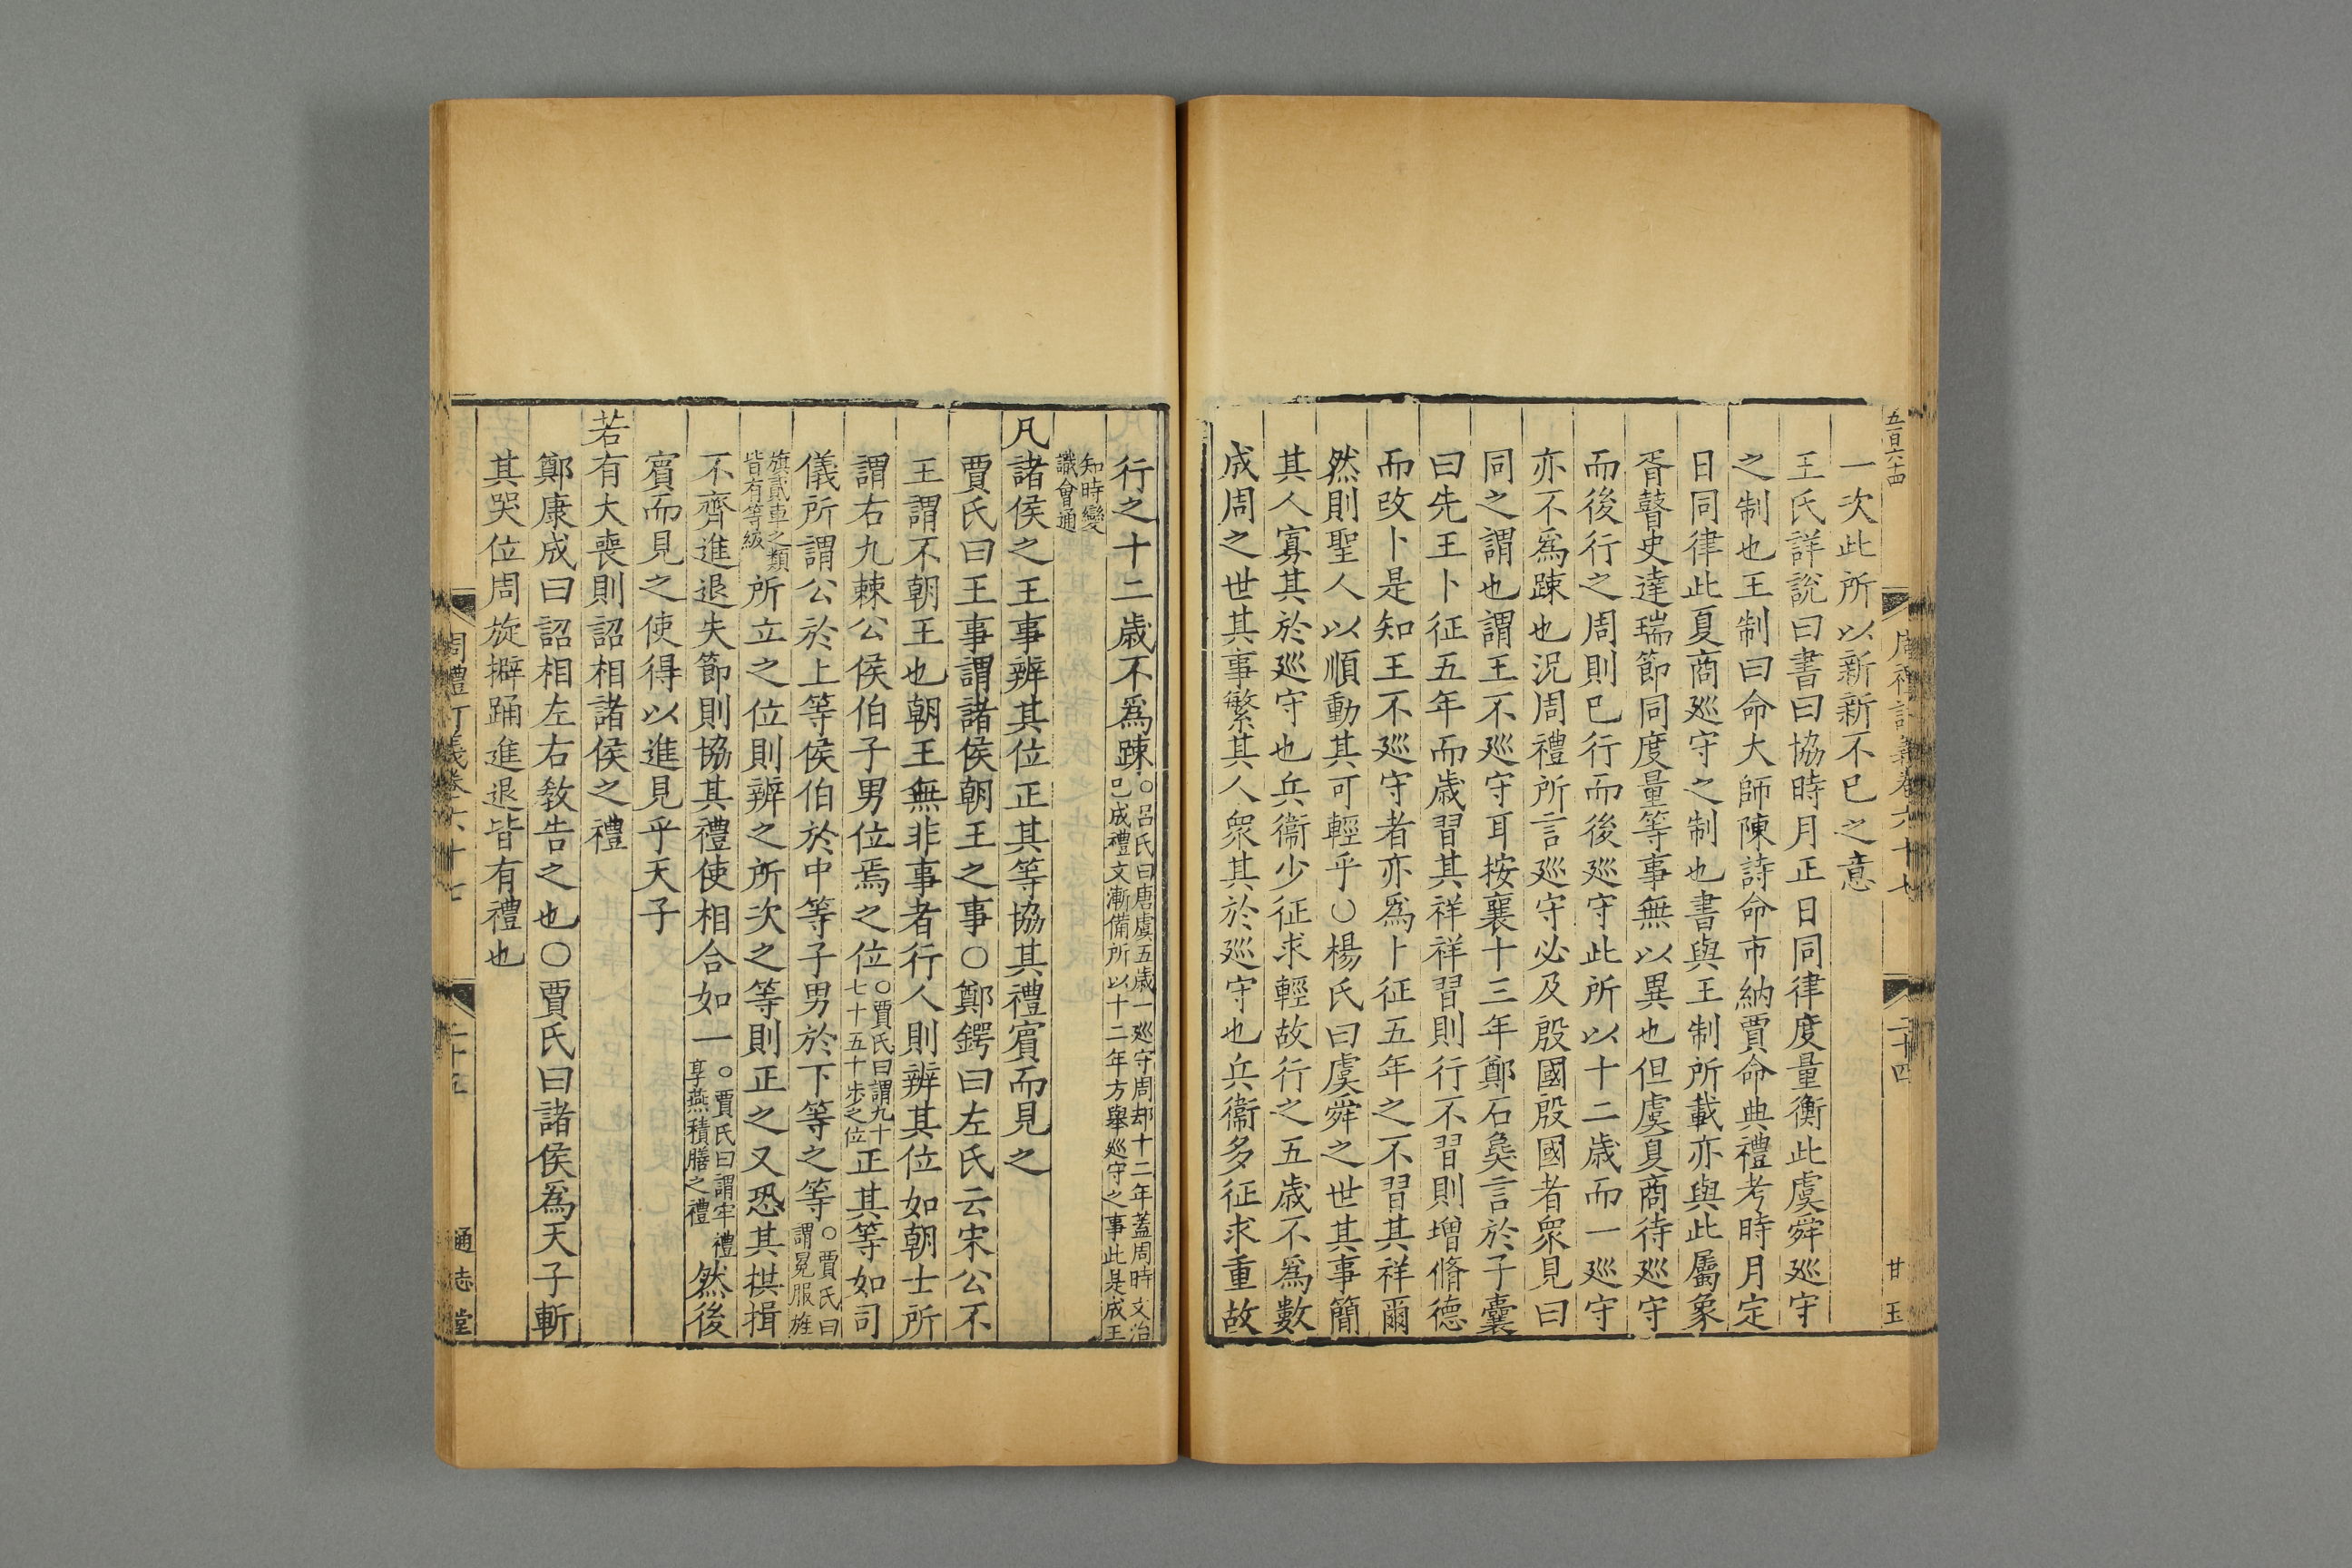 五百六十四
周禮訂義卷六十七
二十四
甘玉
一次此所以新新不已之意
王氏詳說曰書曰協時月正日同律度量衡此虞舜廵守
之制也王制曰命大師陳詩命市納賈命典禮考時月定
日同律此夏商廵守之制也書與王制所載亦與此屬象
胥瞽史達瑞節同度量等事無以異也但虞夏商待廵守
而後行之周則已行而後廵守此所以十二歲而一廵守
亦不爲踈也況周禮所言廵守必及殷國殷國者衆見曰
同之謂也謂王不廵守耳按襄十三年鄭石㚟言於子囊
曰先王卜征五年而歲習其祥祥習則行不習則增脩德
而改卜是知王不廵守者亦爲卜征五年之不習其祥爾
然則聖人以順動其可輕乎○楊氏曰虞舜之世其事簡
其人寡其於廵守也兵衞少征求輕故行之五歲不爲數
成周之世其事繁其人衆其於廵守也兵衞多征求重故
行之十二歲不爲踈○呂氏曰唐虞五歲一廵守周却十二年蓋周時文治
已成禮文漸備所以十二年方舉廵守之事此是成王
知時變
識會通
凡諸侯之王事辨其位正其等協其禮賓而見之
賈氏曰王事謂諸侯朝王之事○鄭鍔曰左氏云宋公不
王謂不朝王也朝王無非事者行人則辨其位如朝士所
謂右九棘公侯伯子男位焉之位○賈氏曰謂九十
七十五十步之位正其等如司
儀所謂公於上等侯伯於中等子男於下等之等○賈氏曰
謂冕服旌
旗貳車之類
皆有等級所立之位則辨之所次之等則正之又恐其拱揖
不齊進退失節則協其禮使相合如一○賈氏曰謂牢禮
享燕積膳之禮然後
賓而見之使得以進見乎天子
若有大喪則詔相諸侯之禮
鄭康成曰詔相左右敎告之也○賈氏曰諸侯爲天子斬
其哭位周旋擗踊進退皆有禮也
周禮訂義卷六十七
二十五
通志堂